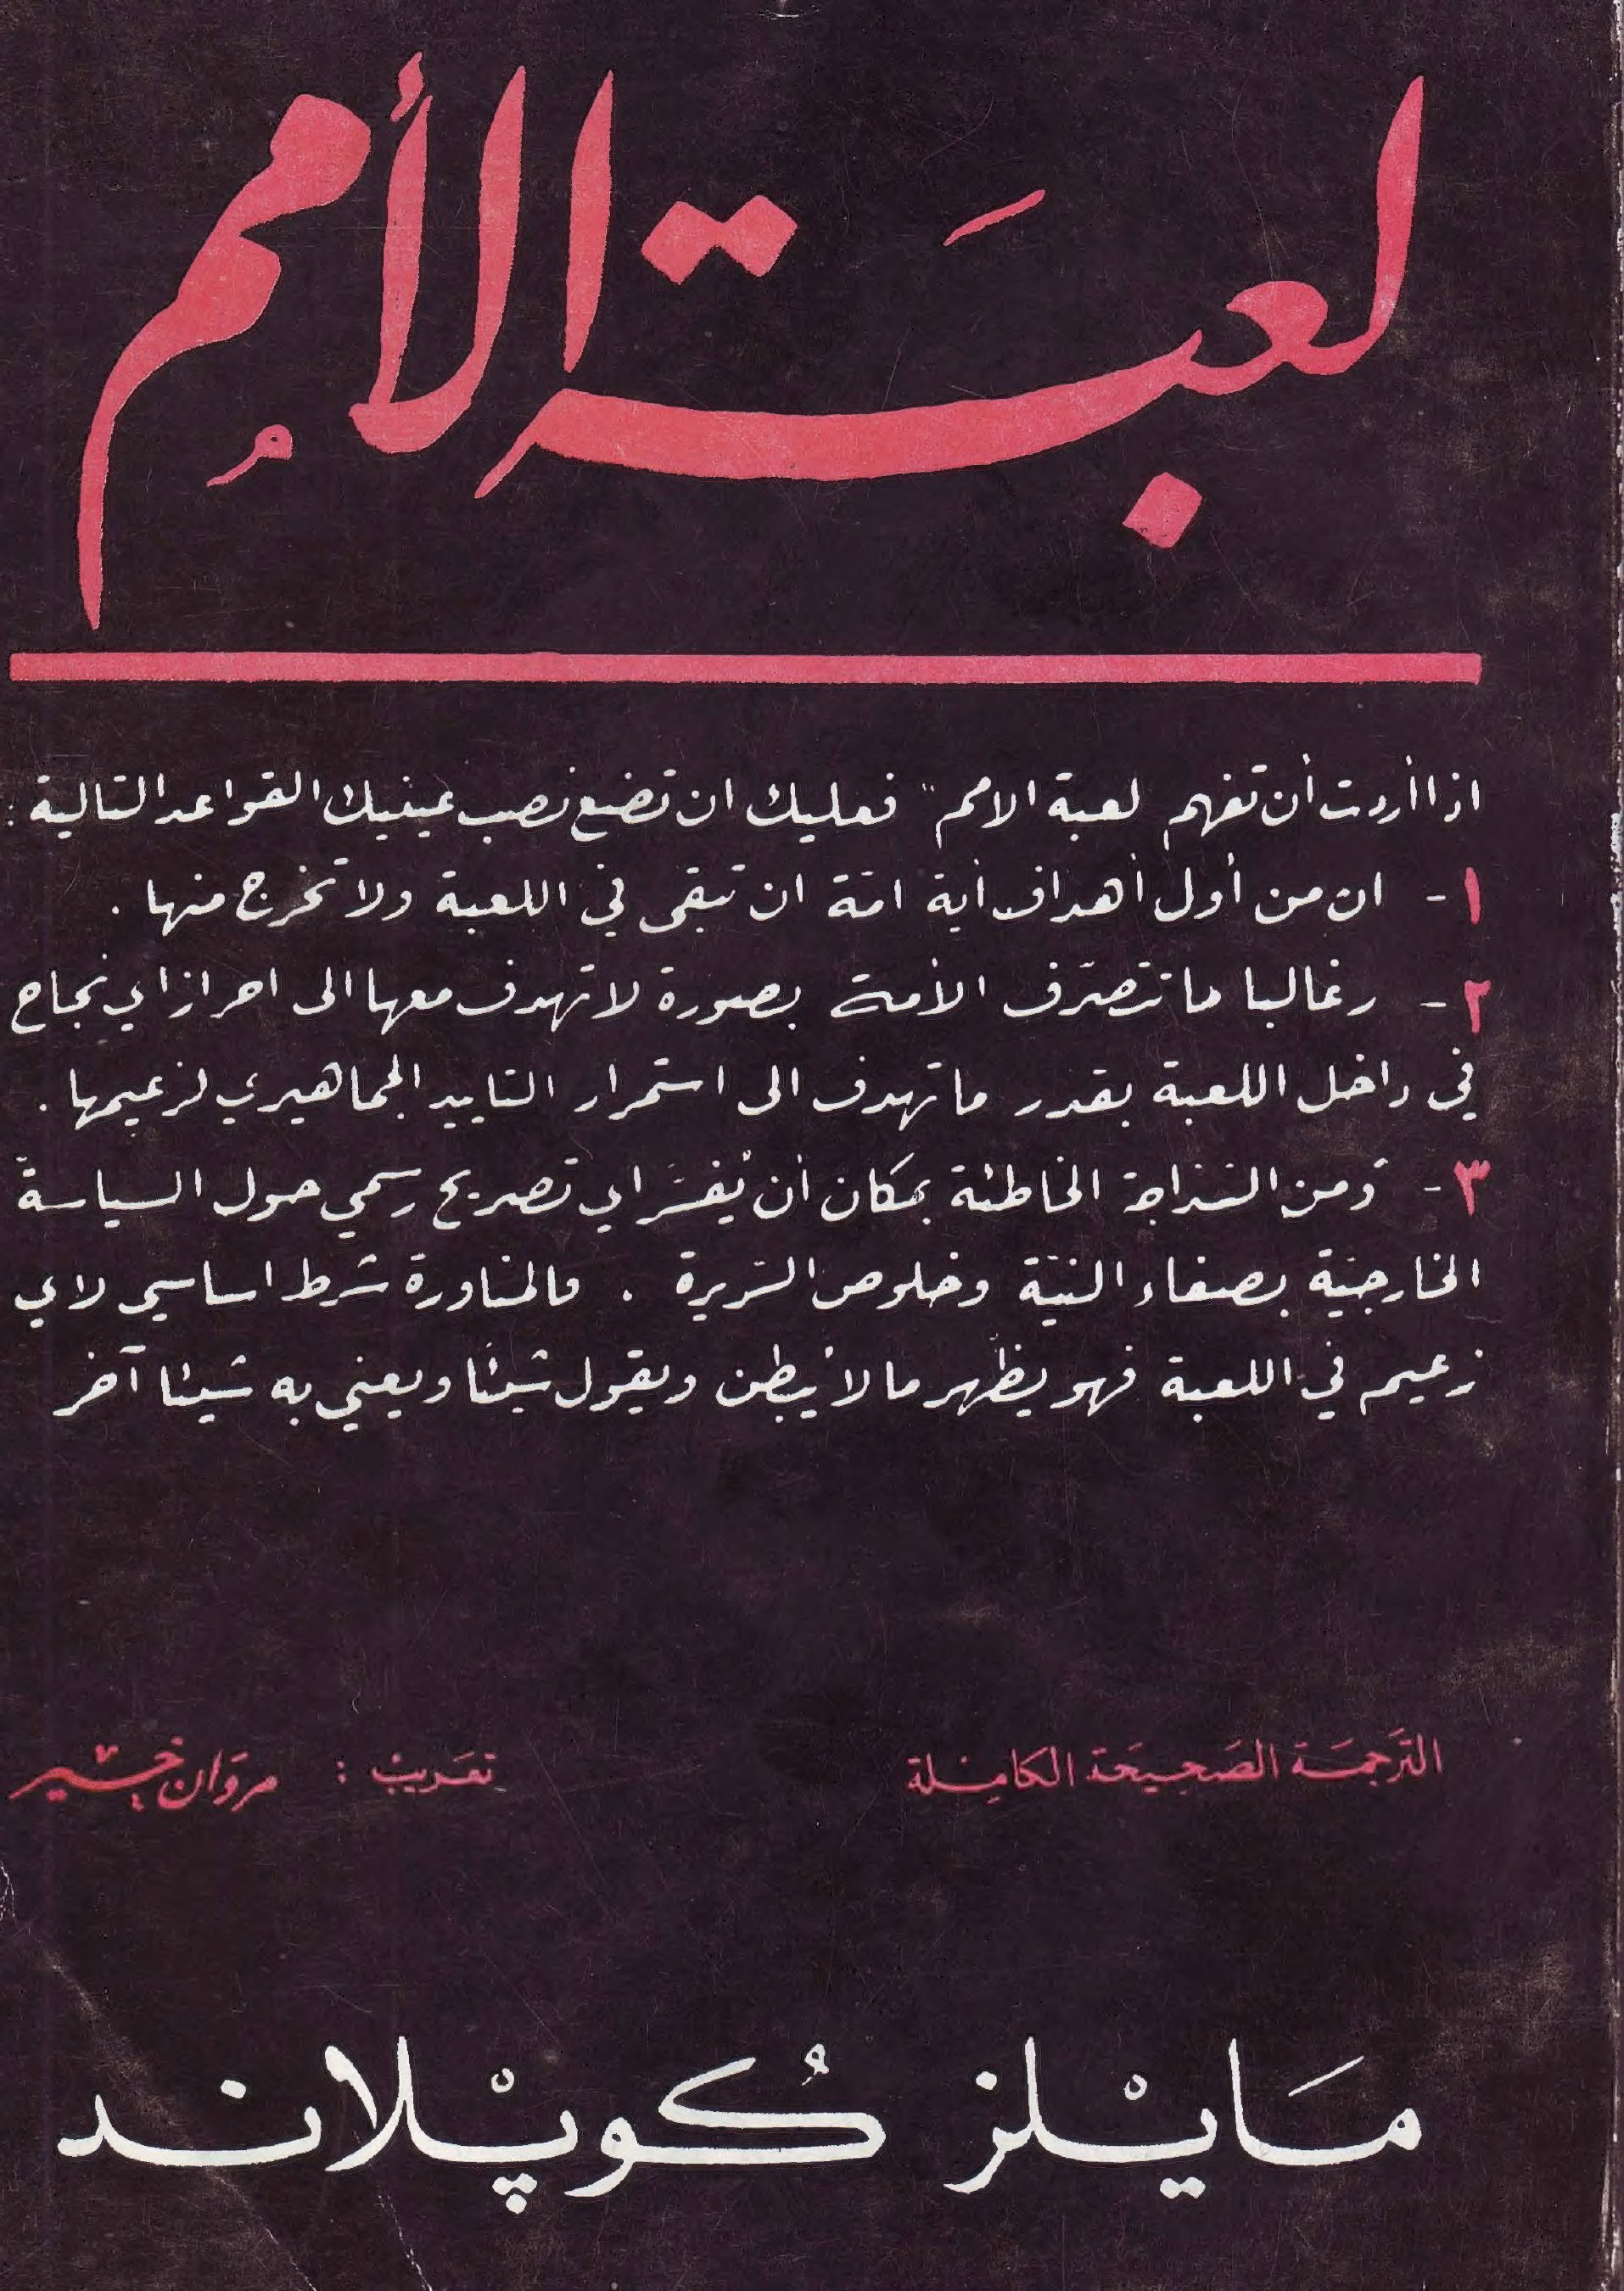 لعبَة الأممُ
اذا أردت أن تفهم لعبة الامم " فعليك ان تضع نصب عينيك القواعد التالية :
١ - ان من أول أهداف أية امّة ان تبقى في اللعبة ولا تخرج منها .
٢ - وغالبا ما تتصرّف الأمة بصورة لا تهدف معها الى احراز اي نجاح
في داخل اللعبة بقدر ما تهدف الى استمرار التاييد الجماهيري لزعيمها .
٣ - ومن السّذاجة الخاطئة بمكان أن يُفسَّر اي تصريح رسمي حول السياسة
الخارجيّة بصفاء النيّة وخلوص السّريرة . فالمناورة شرط اساسي لاي
زعيم في اللعبة فهو يظُهر ما لا يُبطن ويقول شيئًا ويعني به شيئا آخر
الترَجمَة الصَحِيحَة الكامِلة
تعَريبْ : مروَان خيْر
مَايْلز كُوپْلاند